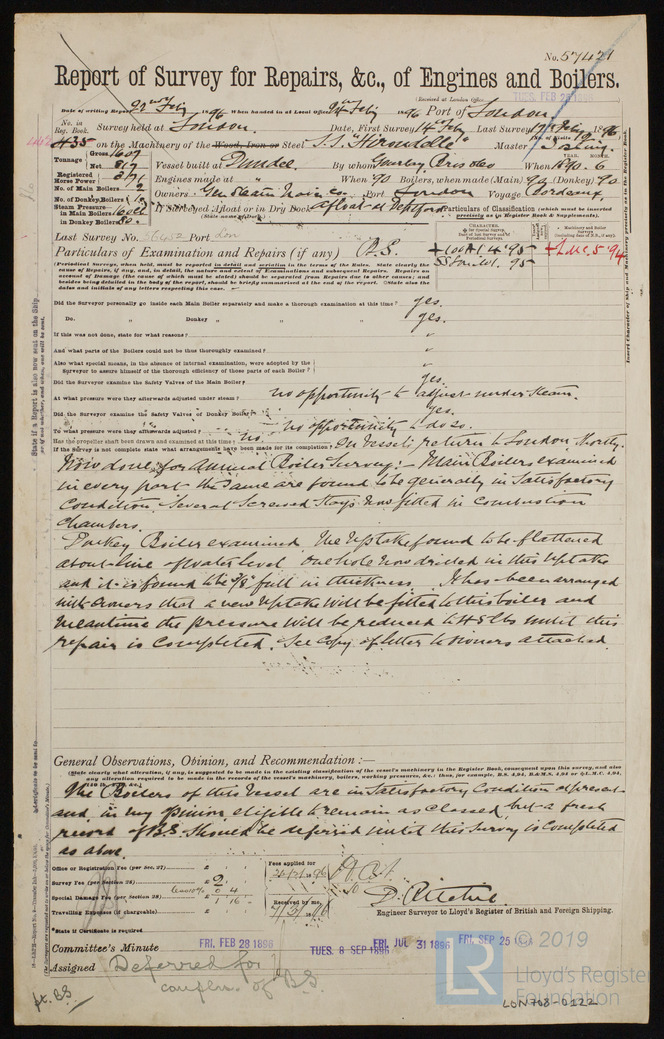 No. 57421
Report of Survey for Repairs, &c., of Engines and Boilers.
(Received at London Office
TUES. FEB 25
Date of writing Report 22nd Feby 1896 When handed in at Local Office 24th Feby 1896 Port of London
No. in Reg. Book. Survey held at London. Date, First Survey 14th Feby Last Survey 19th Feby 1896
435 on the Machinery of the Wood, Iron or Steel S.S. "Hirondelle" Master
Tonnage Gross 1607 Net 867 Vessel built at Dundee By whom Gourlay Bros & Co When 1890. 6
Registered Horse Power 371 Engines made at " When 90 Boilers, when made (Main) 90 (Donkey) 90
No. of Main Boilers 2
No. of Donkey Boilers 1 Owners Gen Steam Navn Co. Port London Voyage Bordeaux
Steam Pressure in Main Boilers 160 lbs If Surveyed Afloat or in Dry Dock Afloat at Deptford
in Donkey Boilers 80
(State name of Dock.)
Particulars of Classification (which must be inserted precisely as in Register Book & Supplements).
Last Survey No. Port Lon
Particulars of Examination and Repairs (if any) B.S.
CHARACTER.
+100A1 4.95
+LMC 5.94
(Periodical Surveys, when held, should be reported in detail and seriatim in the terms of the Rules. State clearly the
cause of Repairs, if any, and, in detail, the nature and extent of Examinations and subsequent Repairs. Repairs on
account of Damage (the cause of which must be stated) should be separated from Repairs due to other causes; and
besides being detailed in the body of the report, should be briefly summarised at the end of the report. State also the
dates and initials of any letters respecting this case.
Did the Surveyor personally go inside each Main Boiler separately and make a thorough examination at this time? yes.
Do. " Donkey " " " " yes.
If this was not done, state for what reasons? "
And what parts of the Boilers could not be thus thoroughly examined? "
Also what special means, in the absence of internal examination, were adopted by the
Surveyor to assure himself of the thorough efficiency of those parts of each Boiler? "
Did the Surveyor examine the Safety Valves of the Main Boiler? yes.
At what pressure were they afterwards adjusted under steam? no opportunity to adjust under steam.
Did the Surveyor examine the Safety Valves of Donkey Boiler? yes.
To what pressure were they afterwards adjusted? no opportunity to do so.
Has the propeller shaft been drawn and examined at this time? No.
If the Survey is not complete state what arrangements have been made for its completion? On Vessels return to London shortly.
Now done for Annual Boiler Survey:- Main Boilers examined
in every part the same are found to be generally in Satisfactory
Condition. Several Screwed Stays now fitted in Combustion
Chambers.
Donkey Boiler examined. The Uptake found to be flattened
about line of water level. One hole now drilled in this Uptake
and it is found to be 3/8" full in thickness. It has been arranged
with Owners that a new Uptake will be fitted to this boiler and
meantime the pressure will be reduced to 45 lbs until this
repair is Completed. See Copy of letter to Owners attached.
General Observations, Opinion, and Recommendation :—
(State clearly what alteration, if any, is suggested to be made in the existing classification of the vessel's machinery in the Register Book, consequent upon this survey, and also
any alteration required to be made in the records of the vessel's machinery, boilers, working pressures, &c.: thus, for example, B.S. 4,94, B.&M.S. 4,94 or L.M.C. 4,94,
The Boilers of this Vessel are in Satisfactory Condition at present
and in my opinion eligible to remain as Classed, but a fresh
record of B.S. should be deferred until this survey is completed
as above.
Office or Registration Fee (per Sec. 27) £
Survey Fee (per Section 28) £ 2
Special Damage Fee (per Section 28) £ 1 16
Travelling Expenses (if chargeable) £
Fees applied for
Received by me,
D. Ritchie
Engineer Surveyor to Lloyd's Register of British and Foreign Shipping.
*State if Certificate is required
Committee's Minute FRI. FEB 28 1896 TUES. 8 SEP 1896 FRI. JUL 31 1896 FRI. SEP 25
Assigned Deferred for
complen. of BS
© 2019
LR
Lloyd's Register
Foundation
LON708-0122